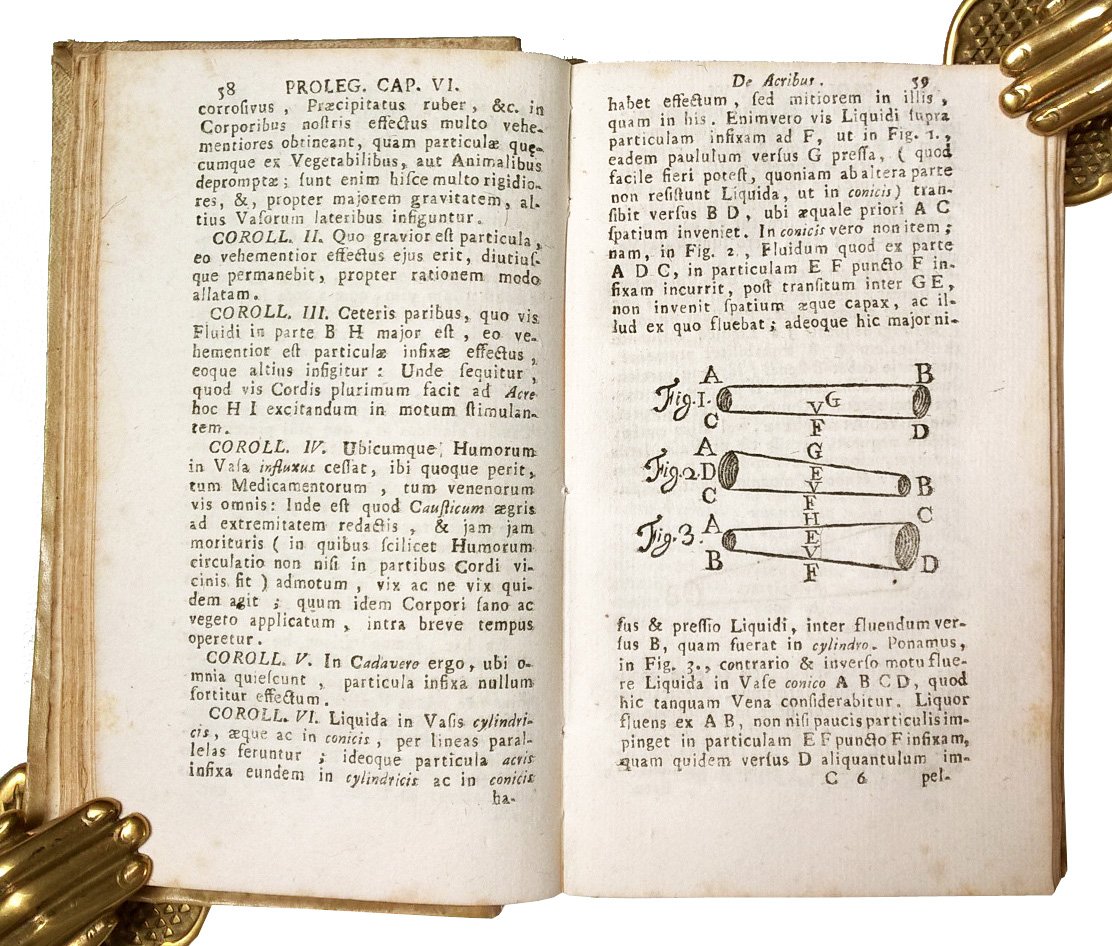 38 PROLEG. CAP. VI.
corrosivus , Præcipitatus ruber , &c. in
Corporibus nostris effectus multo vehe-
mentiores obtineant, quam particulæ quę-
cumque ex Vegetabilibus, aut Animalibus
depromptæ ; sunt enim hisce multo rigidio-
res, &, propter majorem gravitatem, al-
tius Vasorum lateribus infiguntur.
COROLL. II. Quo gravior est particula,
eo vehementior effectus ejus erit, diutius-
que permanebit, propter rationem modo
allatam.
COROLL. III. Ceteris paribus, quo vis
Fluidi in parte B H major est , eo ve-
hementior est particulæ infixæ effectus ,
eoque altius infigitur : Unde sequitur ,
quod vis Cordis plurimum facit ad Acre
hoc H I excitandum in motum stimulan-
tem.
COROLL. IV. Ubicumque Humorum
in Vasa influxus cessat, ibi quoque perit,
tum Medicamentorum , tum venenorum
vis omnis: Inde est quod Causticum ægris
ad extremitatem redactis , & jam jam
morituris ( in quibus scilicet Humorum
circulatio non nisi in partibus Cordi vi-
cinis fit ) admotum , vix ac ne vix qui-
dem agit ; quum idem Corpori sano ac
vegeto applicatum , intra breve tempus
operetur.
COROLL. V. In Cadavero ergo, ubi o-
mnia quiescunt , particula infixa nullum
sortitur effectum.
COROLL. VI. Liquida in Vasis cylindri-
cis, æque ac in conicis , per lineas paral-
lelas feruntur ; ideoque particula acris
infixa eundem in cylindricis ac in conicis
ha-
De Acribus. 39
habet effectum , sed mitiorem in illis ,
quam in his. Enimvero vis Liquidi supra
particulam infixam ad F, ut in Fig. 1.,
eadem paululum versus G pressa, ( quod
facile fieri potest, quoniam ab altera parte
non resistunt Liquida, ut in conicis ) tran-
sibit versus B D , ubi æquale priori A C
spatium inveniet. In conicis vero non item ;
nam, in Fig. 2., Fluidum quod ex parte
A D C, in particulam E F puncto F in-
fixam incurrit, post transitum inter G E,
non invenit spatium æque capax, ac il-
lud ex quo fluebat ; adeoque hic major ni-
A B
Fig. 1. V G
C F D
A G
Fig. 2. D E
C V B
F
A H C
Fig. 3. E
B V D
F
sus & pressio Liquidi, inter fluendum ver-
sus B, quam fuerat in cylindro. Ponamus,
in Fig. 3., contrario & inverso motu flue-
re Liquida in Vase conico A B C D, quod
hic tanquam Vena considerabitur. Liquor
fluens ex A B, non nisi paucis particulis im-
pinget in particulam E F puncto F infixam,
quam quidem versus D aliquantulum im-
C 6 pel-